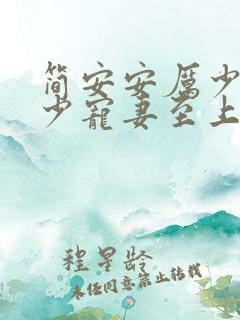 简安安厉少
少宠妻至上
程星龄
未经同意禁止转载